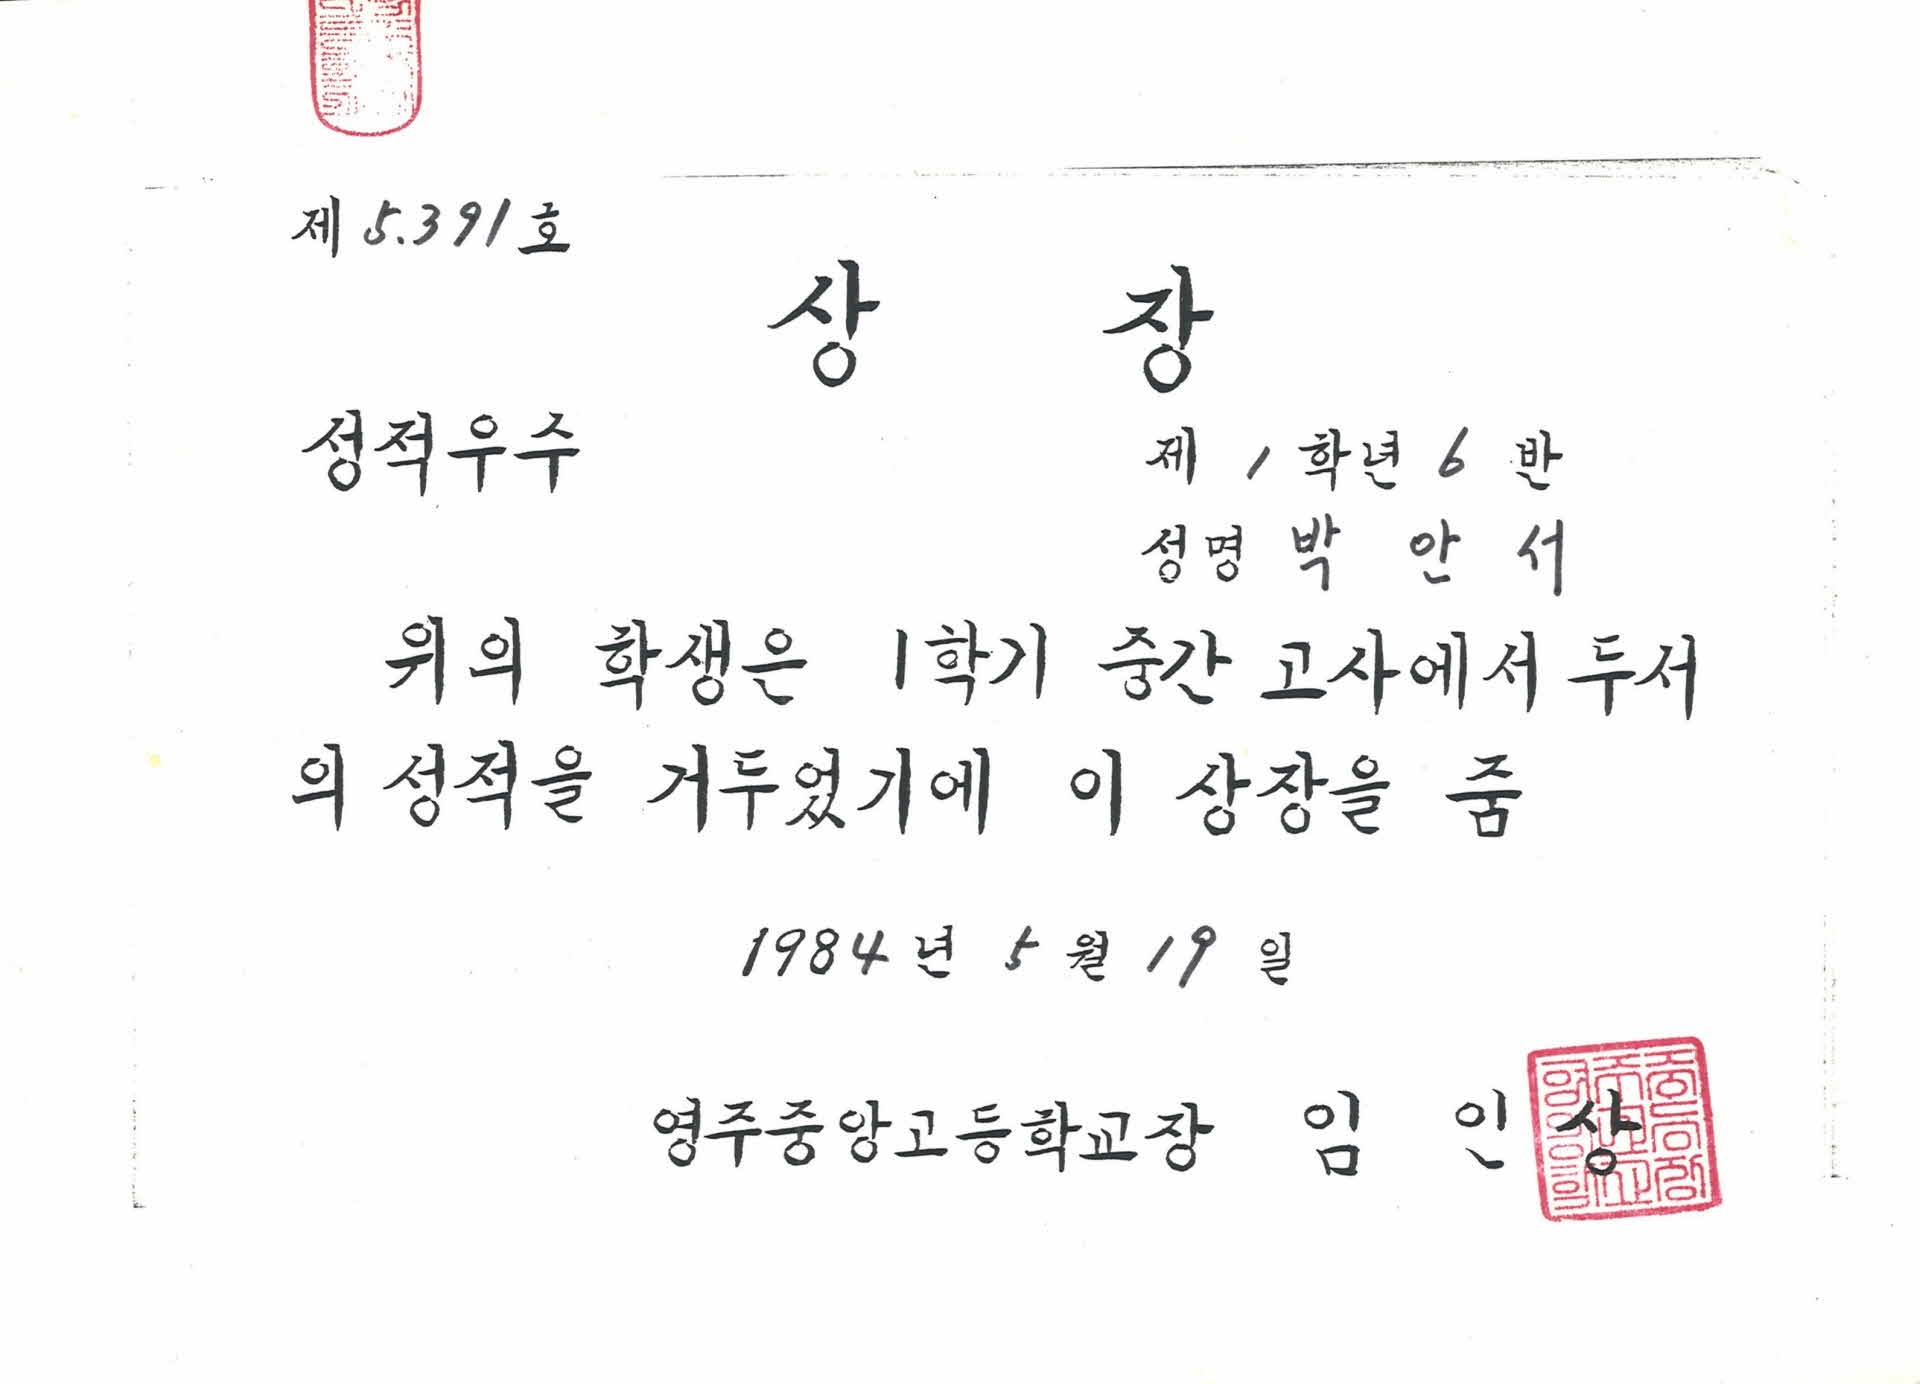 제 5.391 호
상 장
성적우수
제 1 학년 6 반
성명 박 안 서
위의 학생은 1학기 중간 고사에서 두서
의 성적을 거두었기에 이 상장을 줌
1984 년 5 월 19 일
영주중앙고등학교장 임 인 상